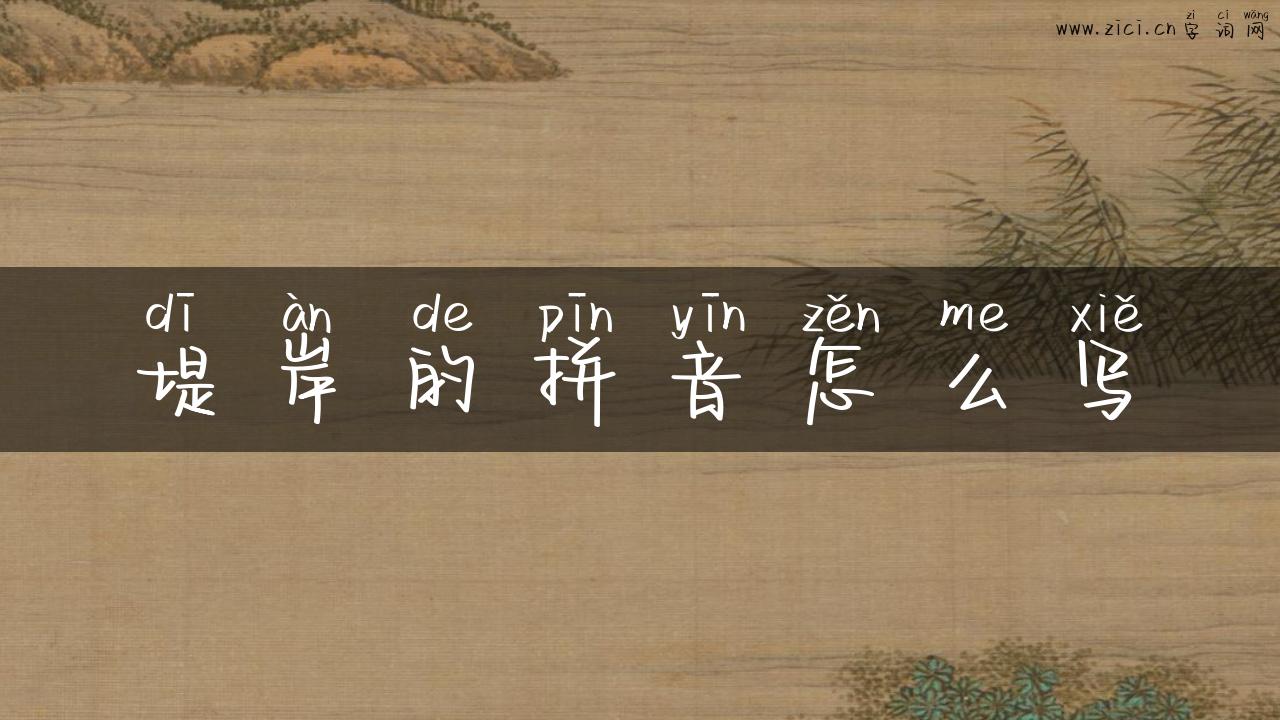 zì cí wǎng
www.zici.cn 字词网
dī àn de pīn yīn zěn me xiě
堤岸的拼音怎么写